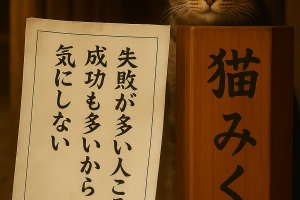 失敗が多い人こ
成功も多いから
気にしない
猫みく